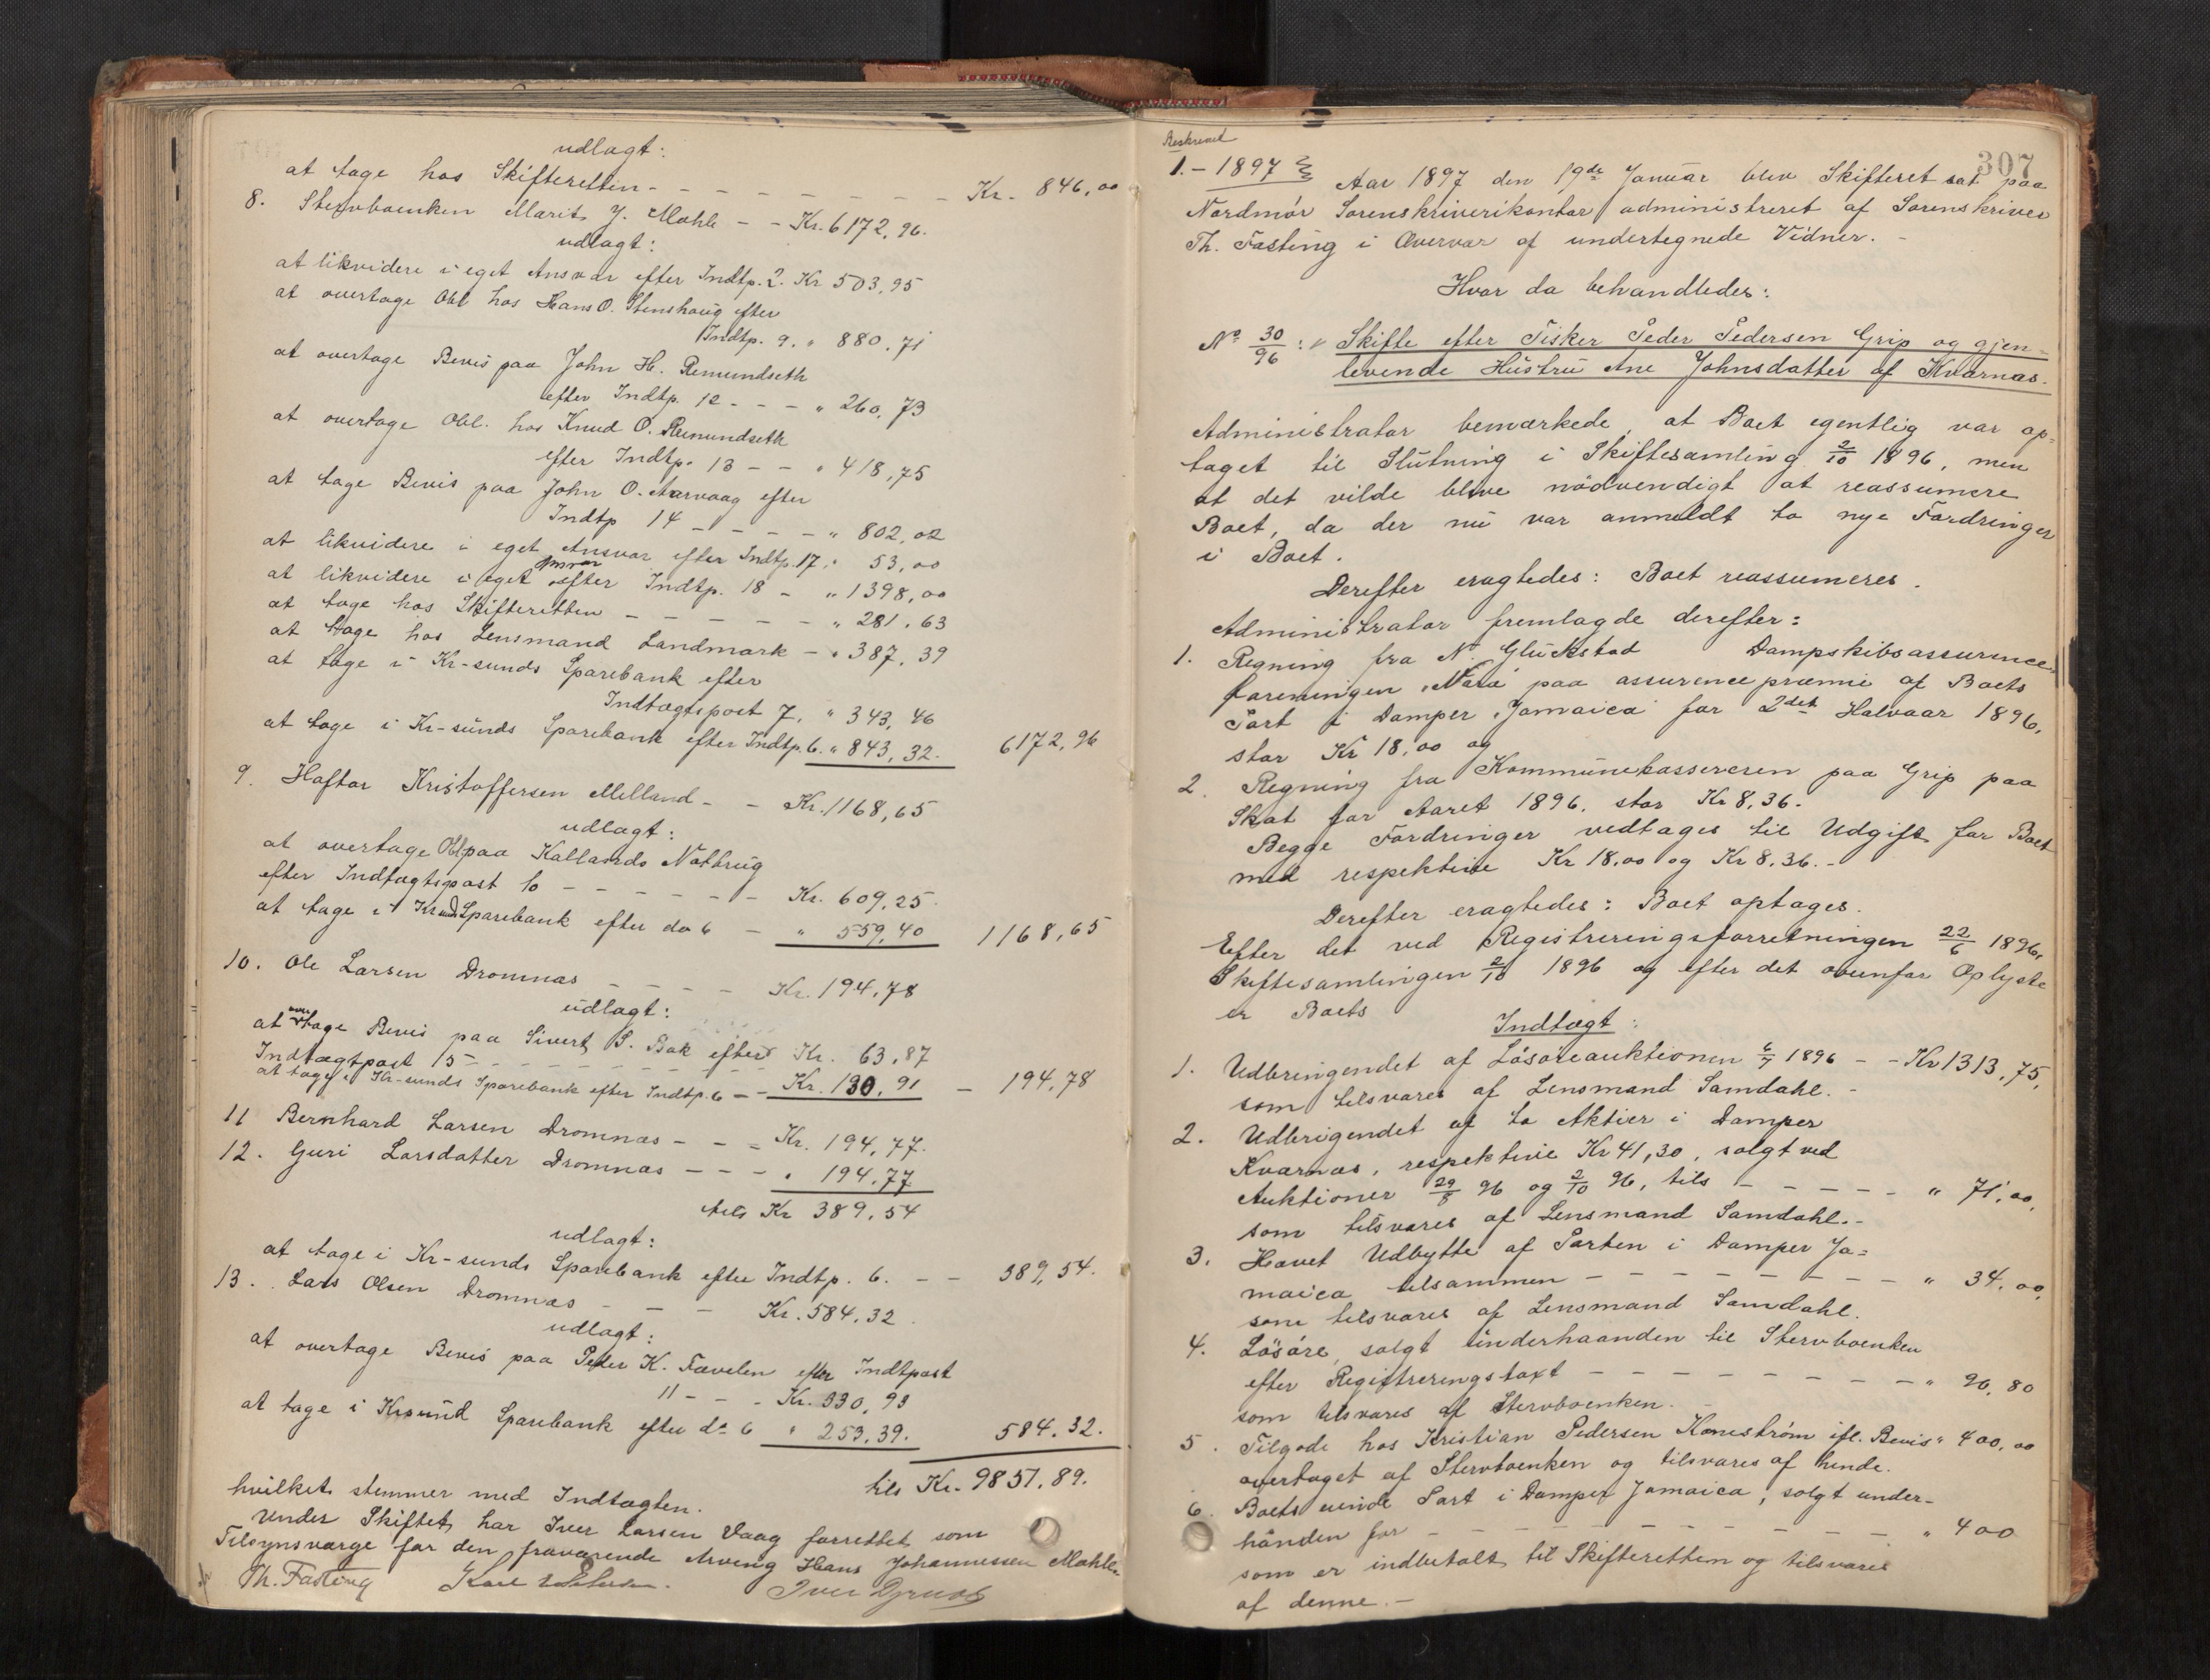 udlagt:
at tage hos Skifteretten - - - - - - - - Kr. 846,00
8. Stervboenken Marit J. Mohle - - Kr. 6172,96.
udlagt:
at likvidere i eget Ansvar efter Indtp. 2. Kr 503,95
at overtage Obl hos Hans O. Stenshaug efter
Indtp. 9. " 880,71
at overtage Bevis paa John H. Remundseth
efter Indtp. 12 - - - " 260,73
at overtage Obl. hos Knud O. Remundseth
efter Indtp. 13 - - " 418,75
at tage Bevis paa John O. Aarvaag efter
Indtp 14 - - - - - " 802,02
at likvidere i eget Ansvar efter Indtp. 17. " 53,00
at likvidere i eget Ansvar efter Indtp. 18 - " 1398,00
at tage hos Skifteretten - - - - - " 281,63
at tage hos Lensmand Landmark - " 387,39
at tage i Kr-sunds Sparebank efter
Indtægtspost 7. " 343,46
at tage i Kr-sunds Sparebank efter Indtp. 6. " 843,32. 6172,96
9. Haftor Kristoffersen Melland - - Kr. 1168,65
udlagt:
at overtage Obl paa Kallaurds Notbrug
efter Indtægtspost 10 - - - - - - Kr. 609,25.
at tage i Krsund Sparebank efter do 6 - " 559,40 1168,65
10. Ole Larsen Dromnæs - - - - Kr. 194,78
udlagt:
at overtage Bevis paa Sivert S. Bak efter Kr. 63,87
Indtægtpost 15 - - - - - - - -
at tage i Kr-sunds Sparebank efter Indtp. 6 - - Kr. 130,91 - 194,78
11 Bernhard Larsen Dromnæs - - - Kr. 194,77.
12. Guri Larsdatter Dromnæs - - - " 194,77
tils Kr 389,54
udlagt:
at tage i Kr-sunds Sparebank efter Indtp. 6. - - 389,54.
13. Lars Olsen Dromnæs - - - Kr. 584,32.
udlagt:
at overtage Bevis paa Peder K. Tævelen efter Indtpost
11 - - - Kr. 330,93
at tage i Krsund Sparebank efter do 6 " 253,39. 584.32.
tils Kr. 9851.89.
hvilket stemmer med Indtægten.
Under Skiftet har Iver Larsen Vaag forrettet som
Tilsynsværge for den fraværende Arving Hans Johannessen Mohle.
Th. Fasting Karl Iver
307
Beskrevet
1. - 1897 Aar 1897 den 19de Januar blev Skifteret sat paa
Nordmør Sorenskriverikontor administreret af Sorenskriver
Th. Fasting i Overvær af undertegnede Vidner. -
Hvor da behandledes:
No 30/96: Skifte efter Fisker Peder Pedersen Grip og gjen=
levende Hustru Ane Johnsdatter af Kværnæs.
Administrator bemærkede, at Boet egentlig var op=
taget til Slutning i Skiftesamling 2/10 1896, men
at det vilde blive nödvendigt at reassumere
Boet, da der nu var anmeldt to nye Fordringer
i Boet.
Derefter eragtedes: Boet reassumeres.
Administrator fremlagde derefter:
1. Regning fra N. Glückstad Dampskibsassurence=
foreningen "Nora" paa assurencepræmie af Boets
Part i Damper "Jamaica" for 2det Halvaar 1896,
stor Kr 18,00 og
2. Regning fra Kommunekassereren paa Grip paa
Skat for Aaret 1896, stor Kr 8,36.
Begge Fordringer vedtages til Udgift for Boet
med respektive Kr 18,00 og Kr 8,36. -
Derefter eragtedes: Boet optages.
Efter det ved Registreringsforretningen 22/6 1896,
Skiftesamlingen 2/10 1896 og efter det ovenfor Oplyste
er Boets
Indtægt:
1. Udbringendet af Lösöreauktionen 6/7 1896 - - Kr 1313,75,
som tilsvares af Lensmand Samdahl. -
2. Udbrigendet af to Aktier i Damper
Kværnæs, respektive Kr 41,30, solgt ved
Auktioner 29/8 96 og 2/10 96, tils - - - - - " 71,00,
som tilsvares af Lensmand Samdahl. -
3. Hævet Udbytte af Parten i Damper Ja=
maica tilsammen - - - - - - - - " 34,00,
som tilsvares af Lensmand Samdahl.
4. Lösöre, solgt underhaanden til Stervboenken
efter Registreringstaxt - - - - - - - - " 96,80
som tilsvares af Stervboenken. -
5. Tilgode hos Kristian Pedersen Honeström ifl. Bevis " 400,00
overtaget af Stervboenken og tilsvares af hende.
6. Boets eiende Part i Damper Jamaica, solgt under-
hånden for - - - - - - - - - - " 400
som er indbetalt til Skifteretten og tilsvares
af denne. -